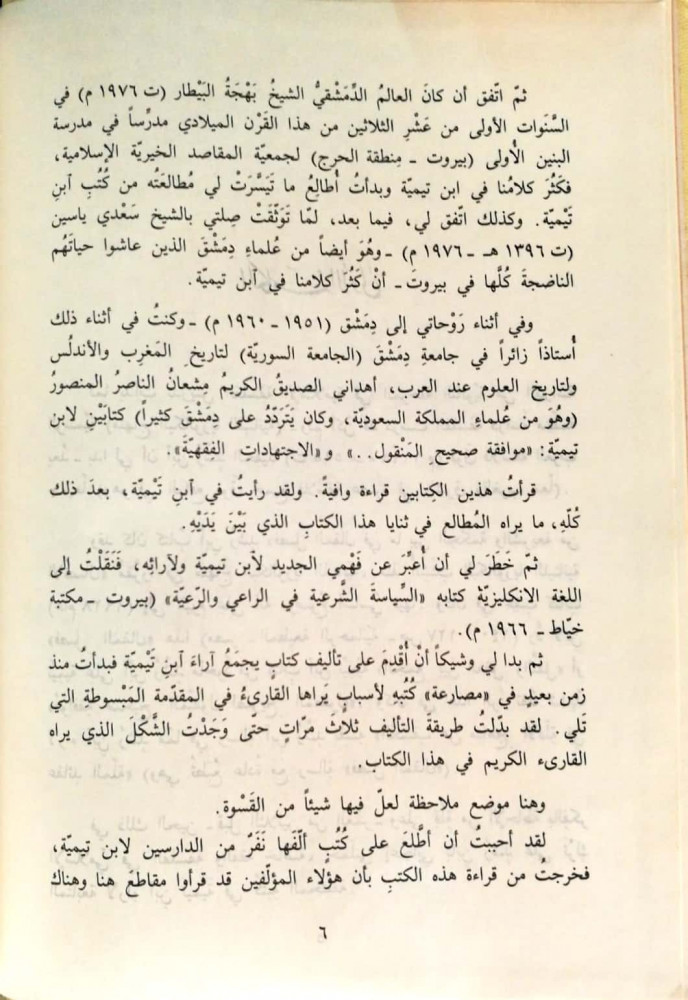 ثمّ اتّفق أن كانَ العالمُ الدِّمَشْقيُّ الشيخُ بَهْجَةُ البَيْطار (ت ١٩٧٦ م) في
السَّنَوات الأولى من عَشْرِ الثلاثين من هذا القَرْن الميلادي مدرِّساً في مدرسة
البنين الأُولى (بيروت ـ مِنطقة الحرج) لجمعيّة المقاصد الخيريّة الإسلامية،
فكَثُرَ كلامُنا في ابن تيميّة وبدأتُ أُطالِعُ ما تَيَسَّرَتْ لي مُطالعَتُه من كُتُبِ آبنِ
تَيْميّة. وكذلك اتّفق لي، فيما بعد، لمّا تَوَثّقَتْ صِلتي بالشيخ سَعْدي ياسين
(ت ١٣٩٦ هـ ـ ١٩٧٦ م) ـ وهُوَ أيضاً من عُلماءِ دِمَشْقَ الذين عاشوا حياتَهُم
الناضجةَ كُلَّها في بيروتَ ـ أنْ كَثُرَ كلامنا في آبن تيميّة.
وفي أثناء رَوْحاتي إلى دِمَشْق (١٩٥١ ـ ١٩٦٠ م) ـ وكنتُ في أثناء ذلك
أُستاذاً زائراً في جامعةِ دِمَشْقَ (الجامعة السوريّة) لتاريخِ المَغرِب والأندلُس
ولتاريخ العلوم عند العرب، أهداني الصديقُ الكريمُ مِشعانُ الناصرُ المنصورُ
(وهُوَ من عُلماءِ المملكة السعوديّة، وكان يَتَردّدُ على دِمشْقَ كثيراً) كتابَيْنِ لابن
تيميّة: «موافقة صحيحِ المَنْقول..» و«الاجتهادات الفِقهيّة».
قرأتُ هذين الكِتابين قراءة وافيةً. ولقد رأيتُ في آبنِ تَيْميّة، بعدَ ذلك
كُلّهِ، ما يراه المُطالع في ثنايا هذا الكتابِ الذي بَيْنَ يَدَيْهِ.
ثمّ خَطَرَ لي أن أُعبِّرَ عن فَهْمي الجديد لآبن تيميّة ولآرائِه، فَنَقَلْتُ إلى
اللغة الانكليزيّة كتابه «السِّياسةَ الشَّرعية في الراعي والرّعيّة» (بيروت ـ مكتبة
خيّاط ـ ١٩٦٦ م).
ثم بدا لي وشيكاً أنْ أُقْدِمَ على تأليف كتابٍ يجمَعُ آراءَ آبنِ تَيْميّة فبدأتُ منذ
زمن بعيدٍ في «مصارعة» كُتُبهِ لأسبابٍ يَراها القارىءُ في المقدّمة المَبْسوطةِ التي
تَلي. لقد بدّلتُ طريقةَ التأليف ثلاثَ مرّاتٍ حتّى وَجَدْتُ الشَّكْلَ الذي يراه
القارىء الكريم في هذا الكتاب.
وهنا موضع ملاحظة لعلّ فيها شيئاً من القَسْوة.
لقد أحببتُ أن أطَّلعَ على كُتُبٍ ألّفَها نَفَرٌ من الدارسين لابن تيميّة،
فخرجتُ من قراءة هذه الكتبِ بأن هؤلاء المؤلّفين قد قرأوا مقاطعَ هنا وهناك
٦